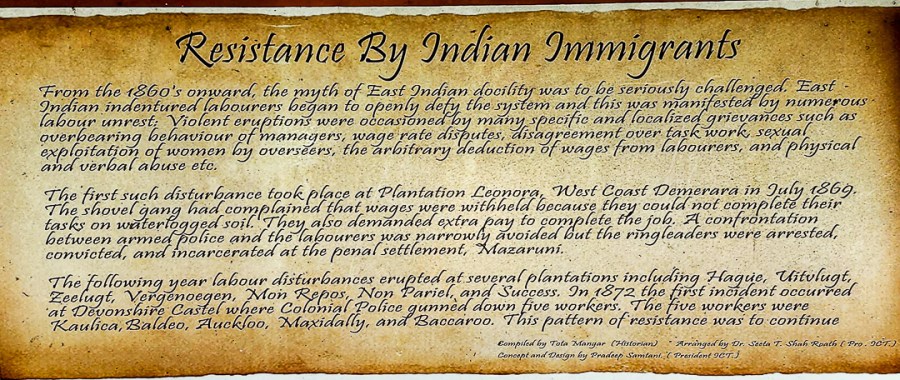 Resistance By Indian Immigrants
From the 1860's onward, the myth of East Indian docility was to be seriously challenged. East -
Indian indentured labourers began to openly defy the system and this was manifested by numerous
labour unrest. Violent eruptions were occasioned by many specific and localized grievances such as
overbearing behaviour of managers, wage rate disputes, disagreement over task work, sexual
exploitation of women by overseers, the arbitrary deduction of wages from labourers, and physical
and verbal abuse etc.
The first such disturbance took place at Plantation Leonora, West Coast Demerara in July 1869.
The shovel gang had complained that wages were withheld because they could not complete their
tasks on waterlogged soil. They also demanded extra pay to complete the job. A confrontation
between armed police and the labourers was narrowly avoided but the ringleaders were arrested,
convicted, and incarcerated at the penal settlement, Mazaruni.
The following year labour disturbances erupted at several plantations including Hague, Uitvlugt,
Zeelugt, Vergenoegen, Mon Repos, Non Pariel, and Success. In 1872 the first incident occurred
at Devonshire Castel where Colonial Police gunned down five workers. The five workers were
Kaulica, Baldeo, Auckloo, Maxidally, and Baccaroo. This pattern of resistance was to continue
Compiled by Tota Mangar (Historian) Arranged by Dr. Seeta T. Shah Roath ( Pro . ICT.)
Concept and Design by Pradeep Samtani. ( President ICT.)